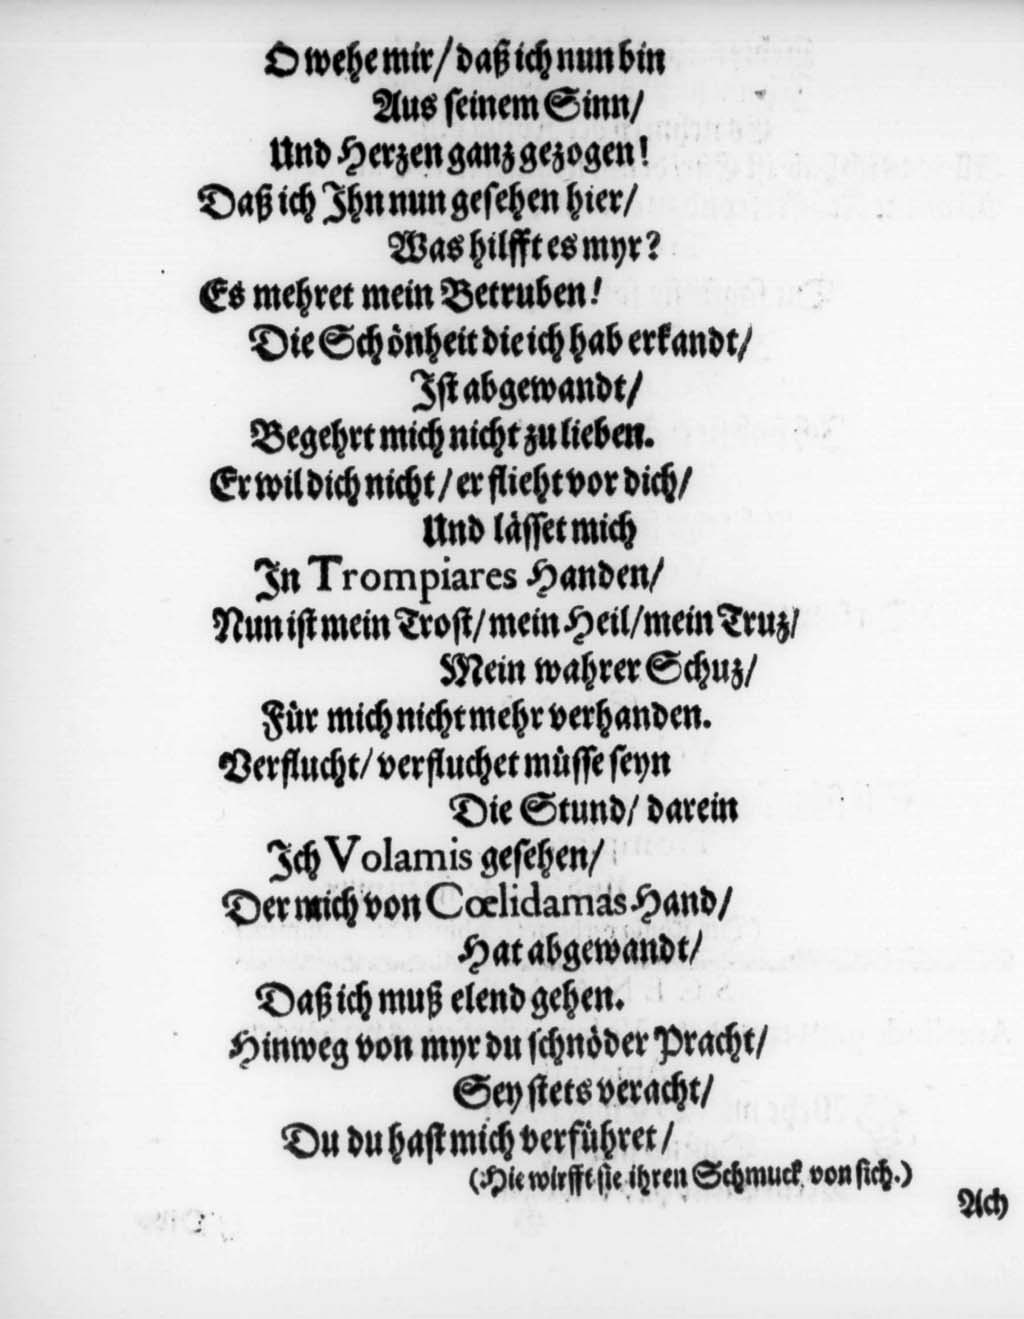 O wehe mir/ daß ich nun bin
Aus ſeinem Sinn/
Und Herzen ganz gezogen!
Daß ich Jhn nun geſehen hier/
Was hilfft es myr?
Es mehret mein Betruben!
Die Schönheit die ich hab erkandt/
Jſt abgewandt/
Begehrt mich nicht zu lieben.
Er wil dich nicht/ er flieht vor dich/
Und läſſet mich
Jn Trompiares Handen/
Nun iſt mein Troſt/ mein Heil/ mein Truz/
Mein wahrer Schuz/
Für mich nicht mehr verhanden.
Verflucht/ verfluchet müſſe ſeyn
Die Stund/ darein
Jch Volamis geſehen/
Der mich von Cœlidamas Hand/
Hat abgewandt/
Daß ich muß elend gehen.
Hinweg von myr du ſchnöder Pracht/
Sey ſtets veracht/
Du du haſt mich verführet/
(Hie wirfft ſie ihren Schmuck von ſich.)
Ach